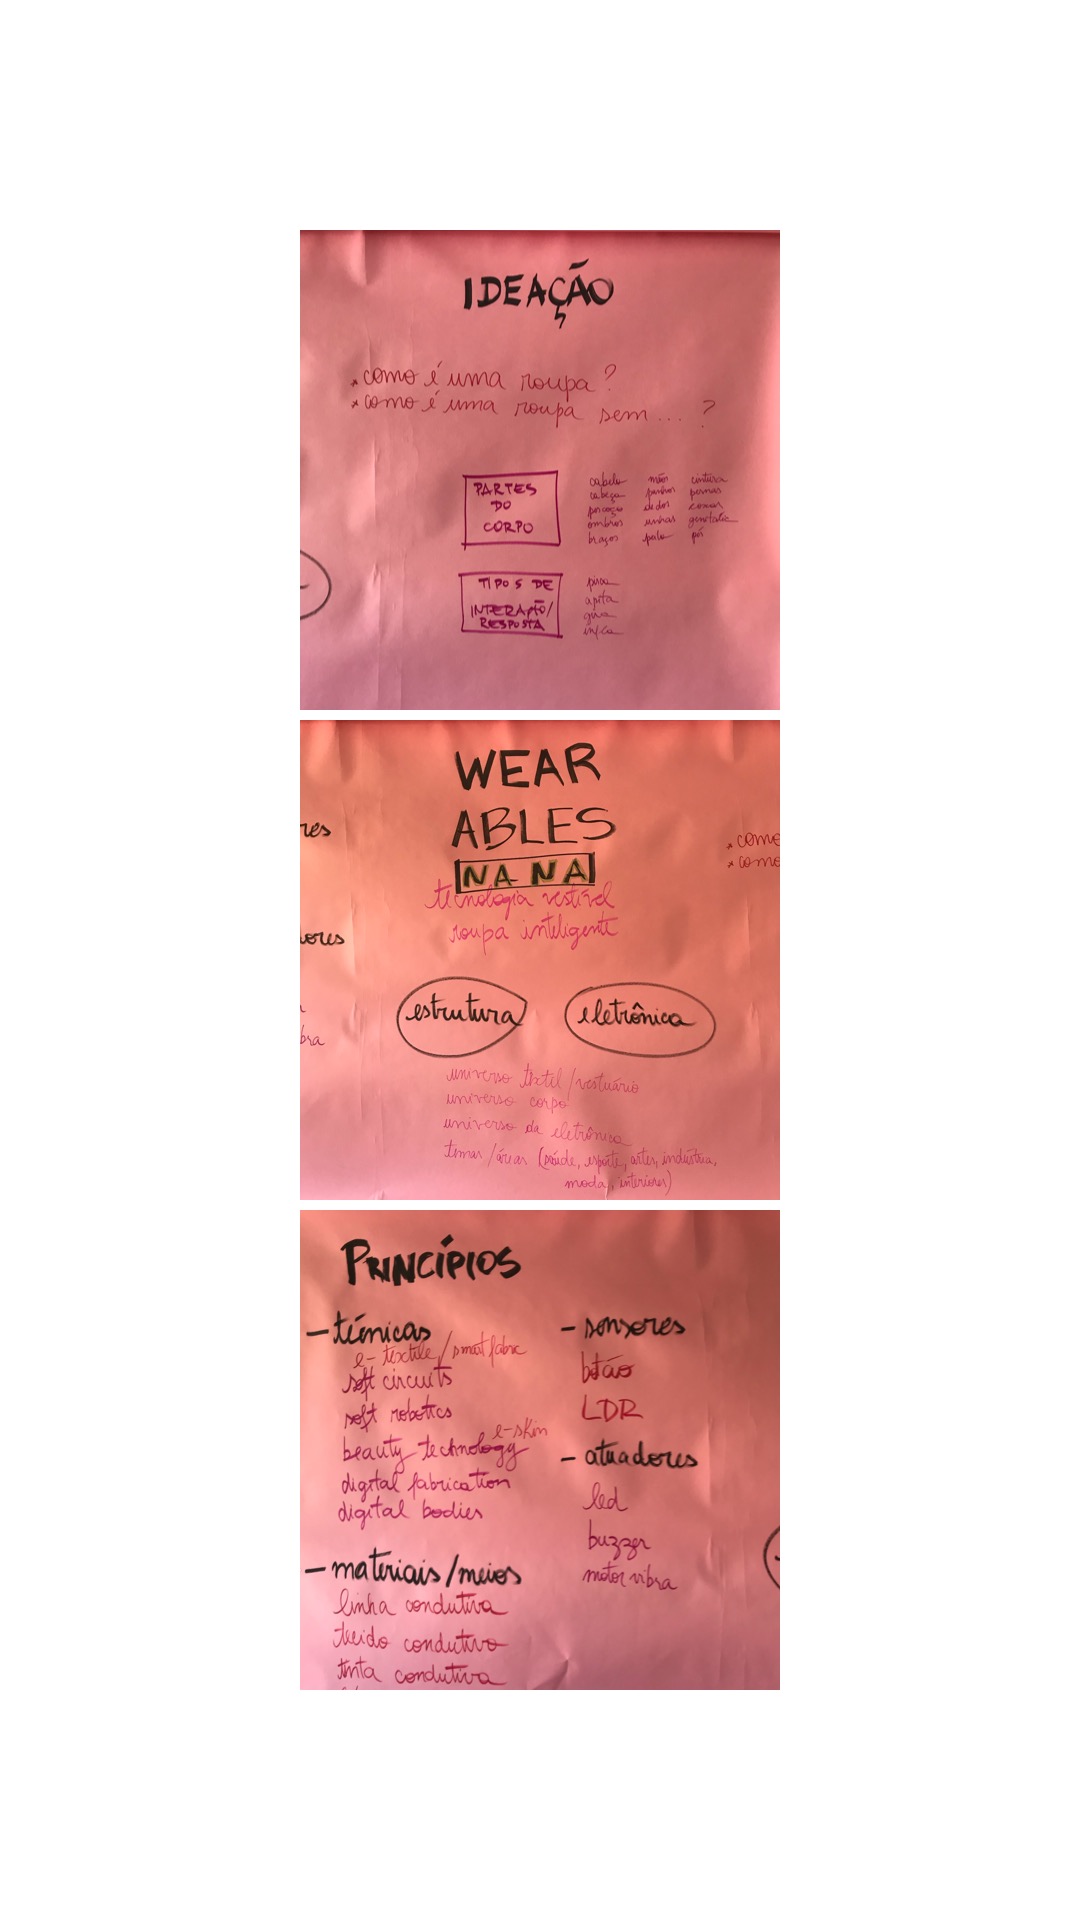 IDEAÇÃO
* como é uma roupa?
* como é uma roupa sem... ?
PARTES
DO
CORPO
cabelo mãos cintura
cabeça punhos pernas
pescoço dedos coxas
ombros unhas genitália
braços pele pés
TIPOS DE
INTERAÇÃO/
RESPOSTA
pisca
apita
gira
infla
WEAR
ABLES
NA NA
tecnologia vestível
roupa inteligente
res
* como
* como
ores
estrutura
eletrônica
bra
universo têxtil/vestuário
universo corpo
universo da eletrônica
temas/áreas (saúde, esporte, artes, indústria,
moda, interiores)
PRINCÍPIOS
- técnicas
e-textile/smart fabric
soft circuits
soft robotics
e-skin
beauty technology
digital fabrication
digital bodies
- materiais/meios
linha condutiva
tecido condutivo
tinta condutiva
- sensores
botão
LDR
- atuadores
led
buzzer
motor vibra